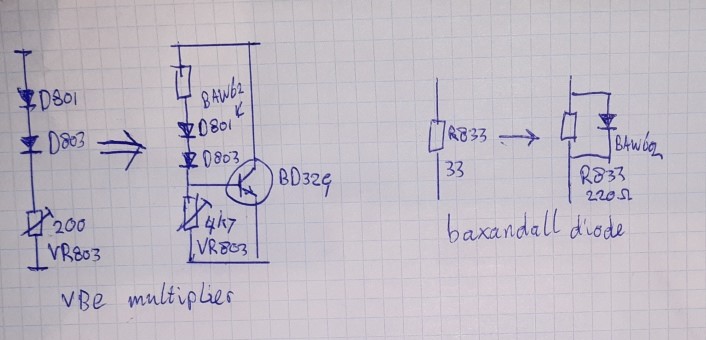 D801
D803
200
VR803
VBe multiplier
BAW62
D801
D803
BD329
4k7
VR803
R833
33
BAW62
R833
220Ω
baxandall diode